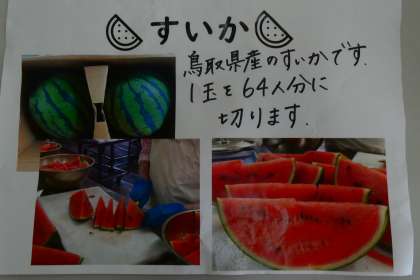 すいか
鳥取県産のすいかです.
1玉を64人分に
切ります.